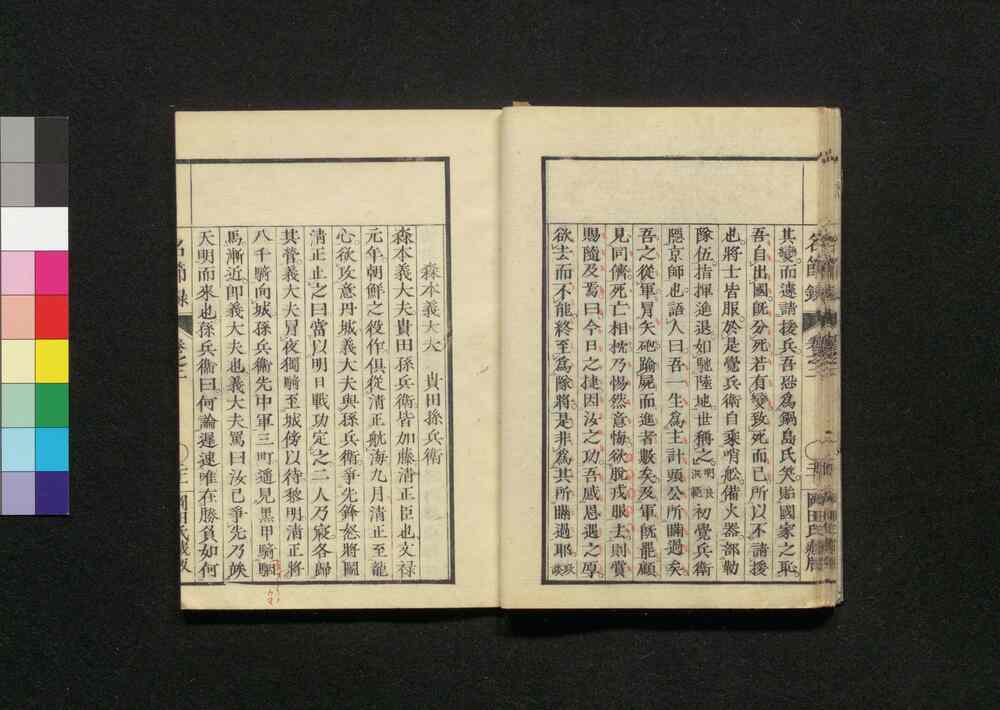 其變而遽請援兵吾恐爲鍋島氏笑貽國家之恥
吾自出國既分死若有變致死而已所以不請援
也將士皆服於是覺兵衛自乘哨船備火器部勒
隊伍指揮進退如馳陸地世稱之明良洪範初覺兵衛
隱京師也語人曰吾一生爲主計頭公所瞞過矣
吾之從軍冒矢砲踰屍而進者數矣及軍既罷顧
見同儕死亡相枕乃惕然意悔欲脫戎服去則賞
賜隨及焉曰今日之捷因汝之功吾感恩遇之厚
欲去而不能終至爲隊將是非爲其所瞞過耶
森本義大夫 貴田孫兵衛
森本義大夫貴田孫兵衛皆加藤清正臣也文祿
元年朝鮮之役作俱從清正航海九月清正至龍
心欲攻意丹城義大夫與孫兵衛爭先鋒怒將鬪
清正止之曰當以明日戰功定之二人乃寢各歸
其營義大夫冒夜獨騎至城傍以待黎明清正將
八千騎向城孫兵衛先中軍三町遙見黑甲騎駟
馬漸近即義大夫也義大夫罵曰汝已爭先乃俟
天明而來也孫兵衛曰何論遲速唯在勝負如何
名節錄 卷之二 岡田氏藏版